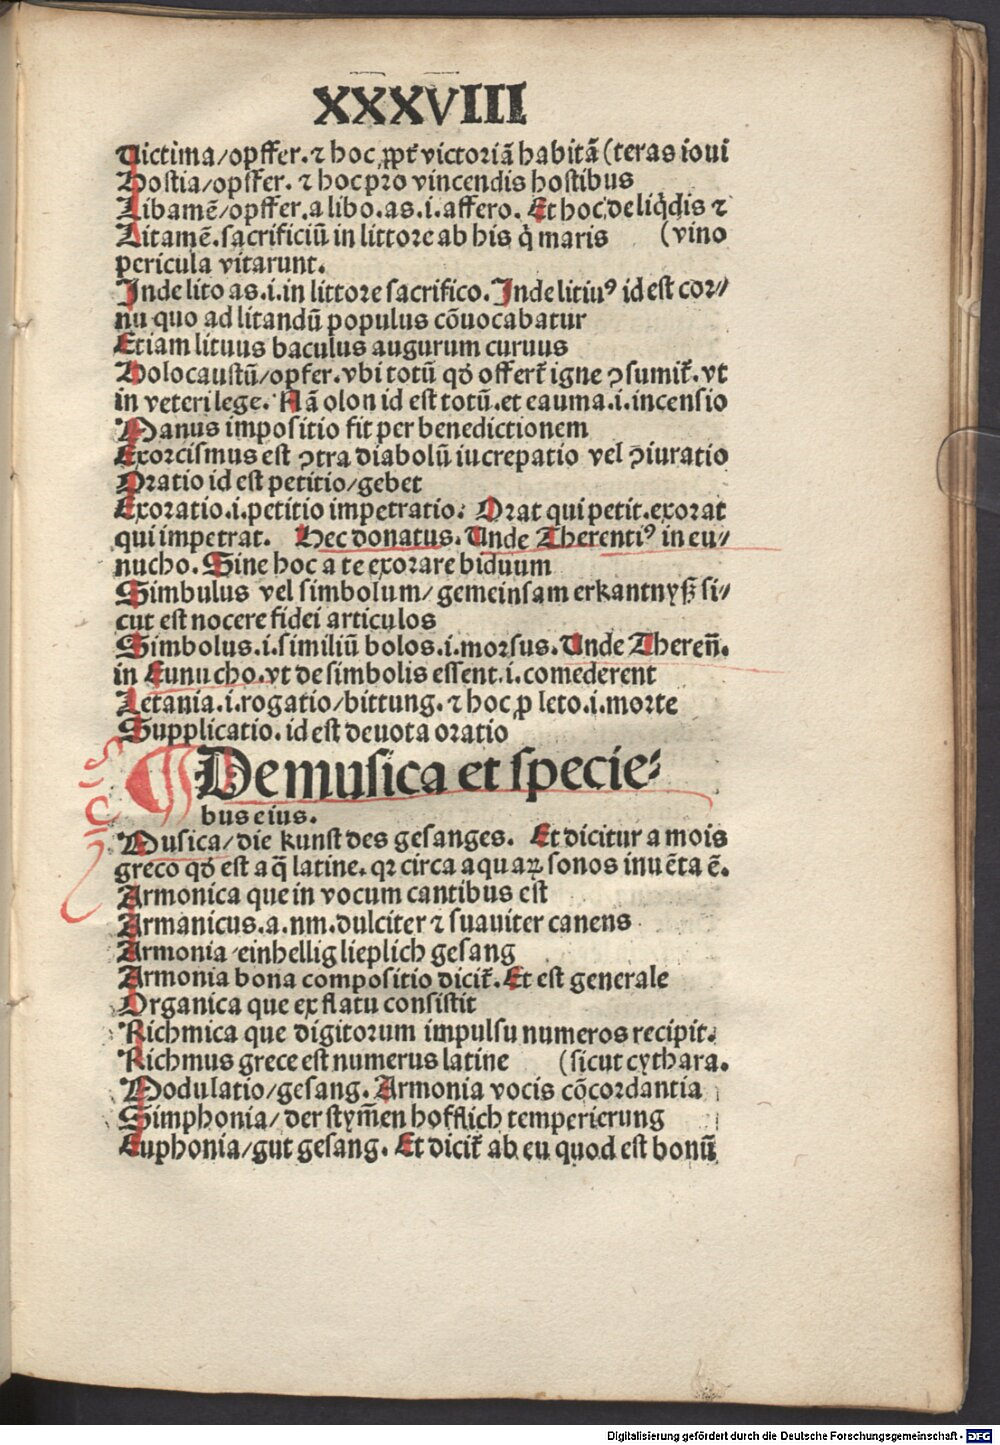 XXXVIII
Victima/opffer.⁊ hoc ꝓpt̃ victoriā habitā (teras ioui
Hostia/opffer. ⁊ hoc pro vincendis hostibus
Libamē/opffer.a libo.as.i.affero. Et hoc de liq̇dis ⁊
Litamē.sacrificiū in littore ab his q̇ maris (vino
pericula vitarunt.
Inde lito as.i.in littore sacrifico. Inde litiuꝰ id est cor⸗
nu quo ad litandū populus cōuocabatur
Etiam lituus baculus augurum curuus
Holocaustū/opfer.vbi totū qđ offert̃ igne ꝯsumit̃.vt
in veteri lege. Nā olon id est totū.et cauma.i.incensio
Manus impositio fit per benedictionem
Exorcismus est ꝯtra diabolū iucrepatio vel ꝯiuratio
Oratio id est petitio/gebet
Exoratio.i.petitio impetratio: Orat qui petit.exorat
qui impetrat. Hec donatus. Unde Therentiꝰ in eu⸗
nucho. Sine hoc a te exorare biduum
Simbulus vel simbolum/gemeinsam erkantnyß si⸗
cut est nocere fidei articulos
Simbolus.i.similiū bolos.i.morsus. Unde Thereñ.
in Eunucho.vt de simbolis essent.i.comederent
Letania.i.rogatio/bittung.⁊ hoc ꝑ leto.i.morte
Supplicatio.id est deuota oratio
¶ De musica et specie⸗
bus eius.
Musica/die kunst des gesanges. Et dicitur a mois
greco qđ est aq̄ latine.qꝛ circa aquaꝝ sonos inuēta ē.
Armonica que in vocum cantibus est
Armanicus.a.nm.dulciter ⁊ suauiter canens
Armonia einhellig lieplich gesang
Armonia bona compositio dicit̃. Et est generale
Organica que ex flatu consistit
Richmica que digitorum impulsu numeros recipit.
Richmus grece est numerus latine (sicut cythara.
Modulatio/gesang. Armonia vocis cōcordantia
Simphonia/der stym̄en hofflich temperierung
Euphonia/gut gesang. Et dicit̃ ab eu quod est bonū
Digitalisierung gefördert durch die Deutsche Forschungsgemeinschaft - DFG